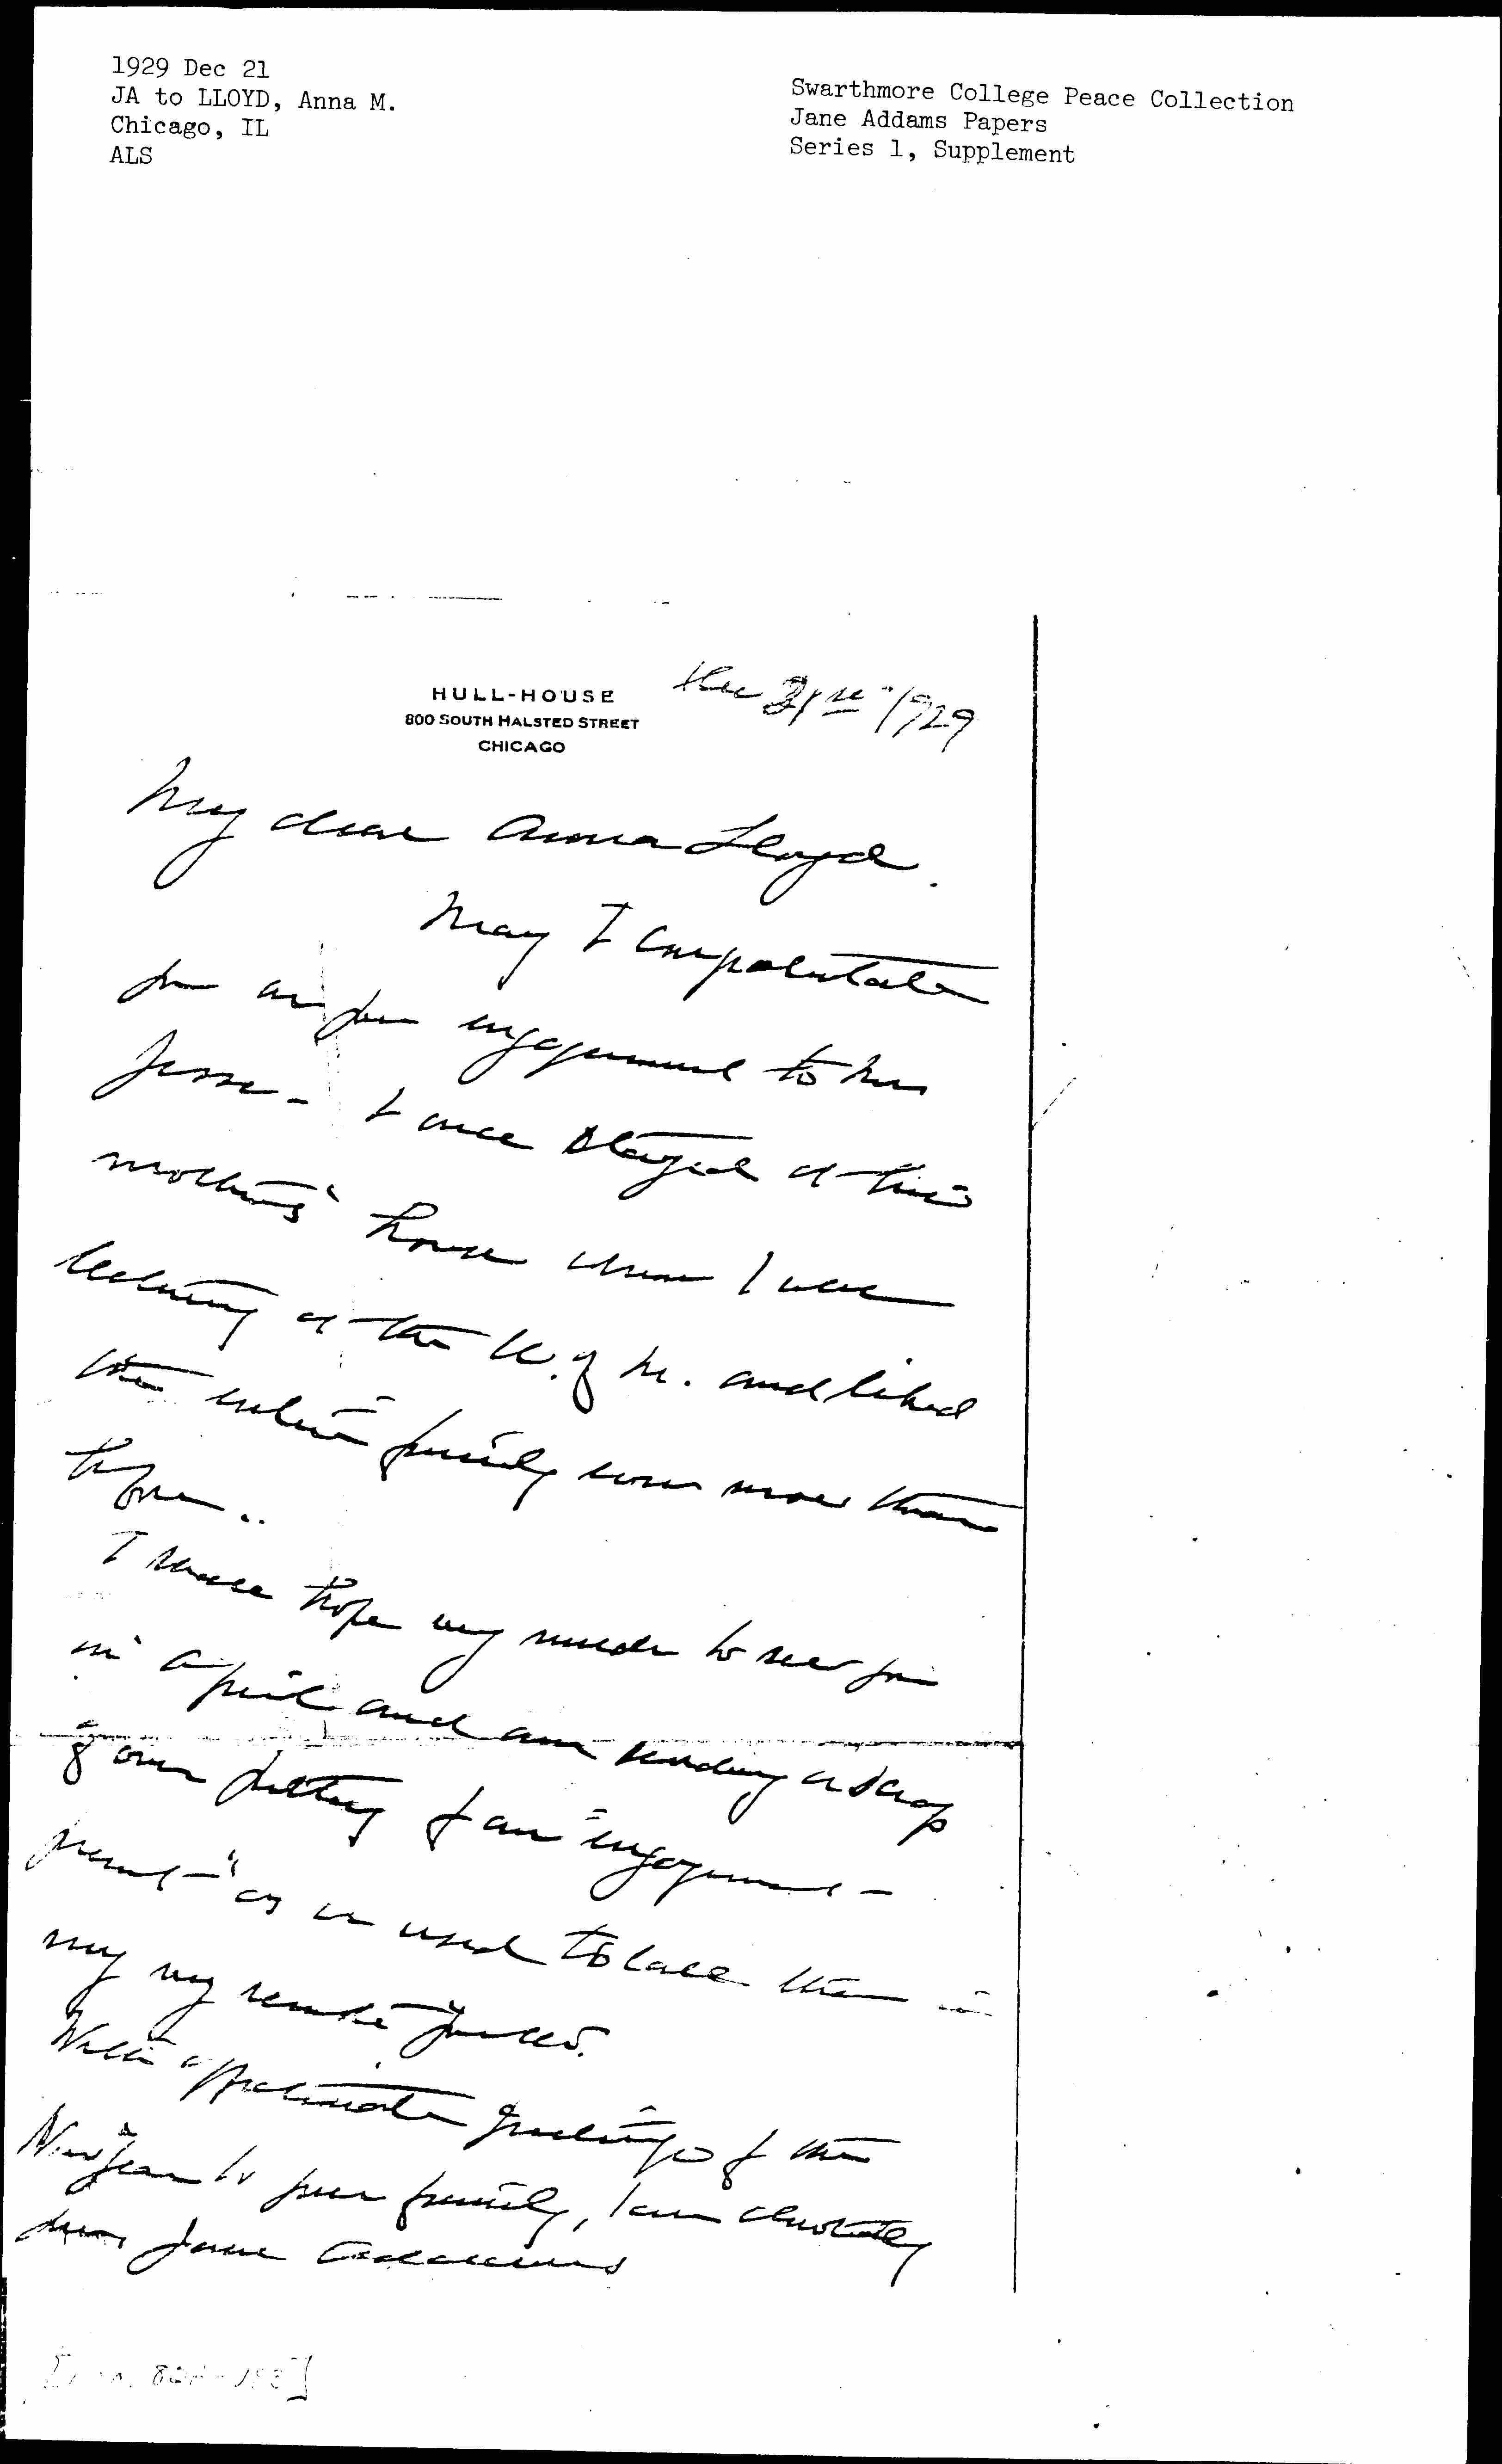 1929 Dec 21
JA to LLOYD, Anna M.
Chicago, IL
ALS
Swarthmore College Peace Collection
Jane Addams Papers
Series 1, Supplement
HULL-HOUSE
800 SOUTH HALSTED STREET
CHICAGO
Dec 21st 1929
My dear Anna Lloyd.
May I congratulate
you on your engagement to
Jesse - I once stayed at his
mother's house when I was
lecturing at the U. of M. and liked
the entire family even more than
before..
I shall hope very much to see you
in April and am sending a scrap
of our pottery for an "engagement-
present-" as we used to call them in
my youth.
With affectionate greetings of the
New Year to your family, I am devotedly
yours Jane Addams